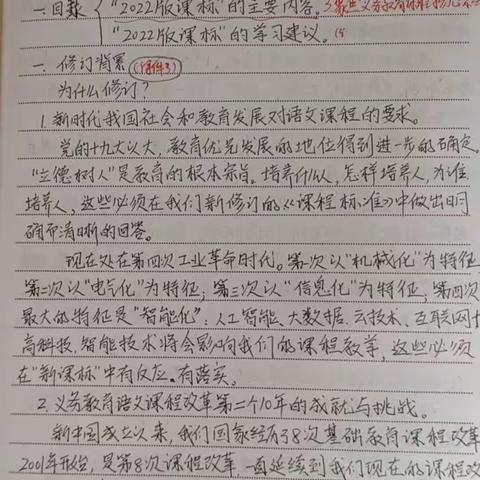 一.目录 "2022版课标"的主要内容。
"2022版课标"的学习建议。
一、修订背景 (课件3)
为什么修订？
1.新时代我国社会和教育发展对语文课程的要求。
党的十九大以大，教育优先发展的地位得到进一步的确定。
"立德树人"是教育的根本宗旨。培养什么人，怎样培养人，为谁
培养人，这些必须在我们新修订的《课程标准》中做出明
确而清晰的回答。
现在处在第四次工业革命时代。第一次以"机械化"为特征
第二次以"电气化"为特征；第三次以"信息化"为特征；第四次
最大的特征是"智能化"：人工智能、大数据、云技术、互联网+
高科技，智能技术将会影响我们的课程教学，这些必须
在"新课标"中有反应、有落实。
2.义务教育语文课程改革第二个10年的成就与挑战。
新中国成立以来，我们国家经历了8次基础教育课程改革
2001年开始，是第8次课程改革，一直延续到我们现在的课程改